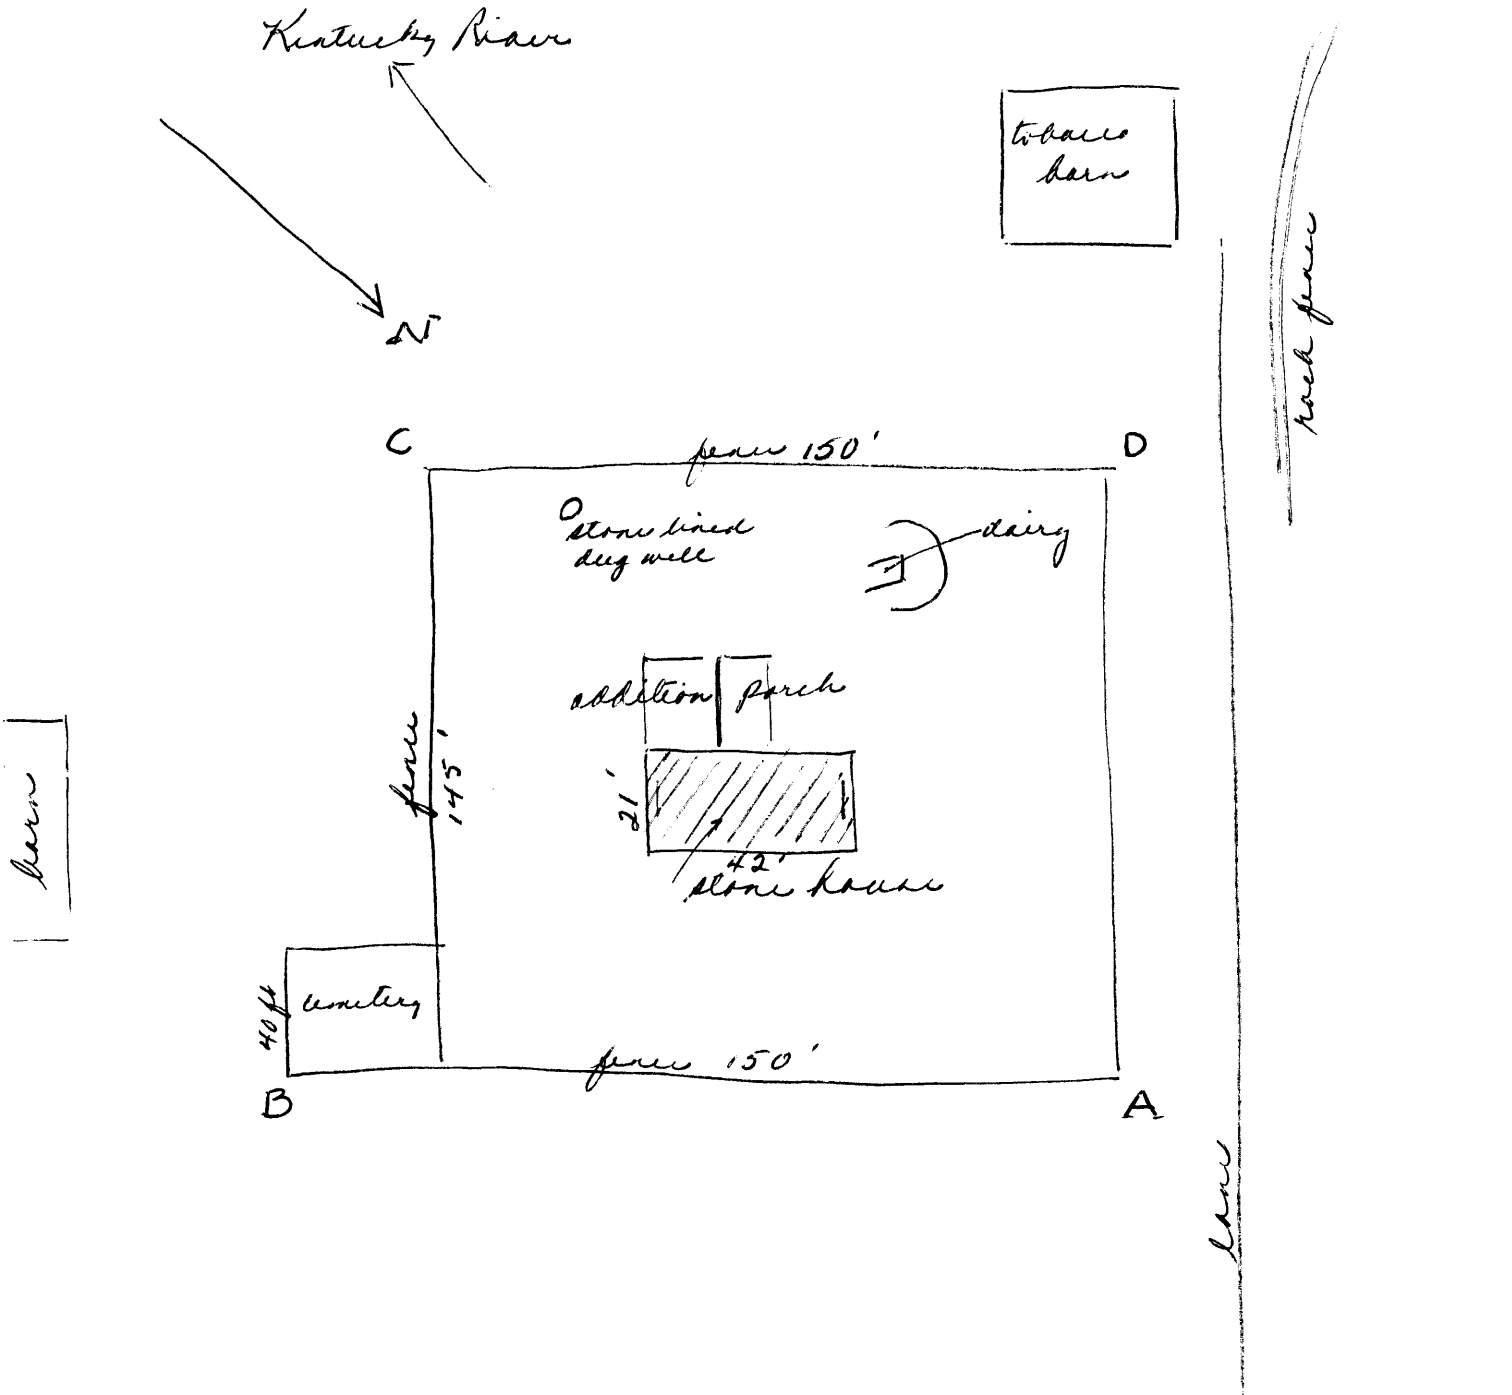 Kentucky River
tobacco
barn
rock fence
N
C
fence 150'
D
stone lined
dug well
dairy
addition
porch
fence
145'
21'
42'
stone house
barn
40 ft
cemetery
fence 150'
B
A
lane